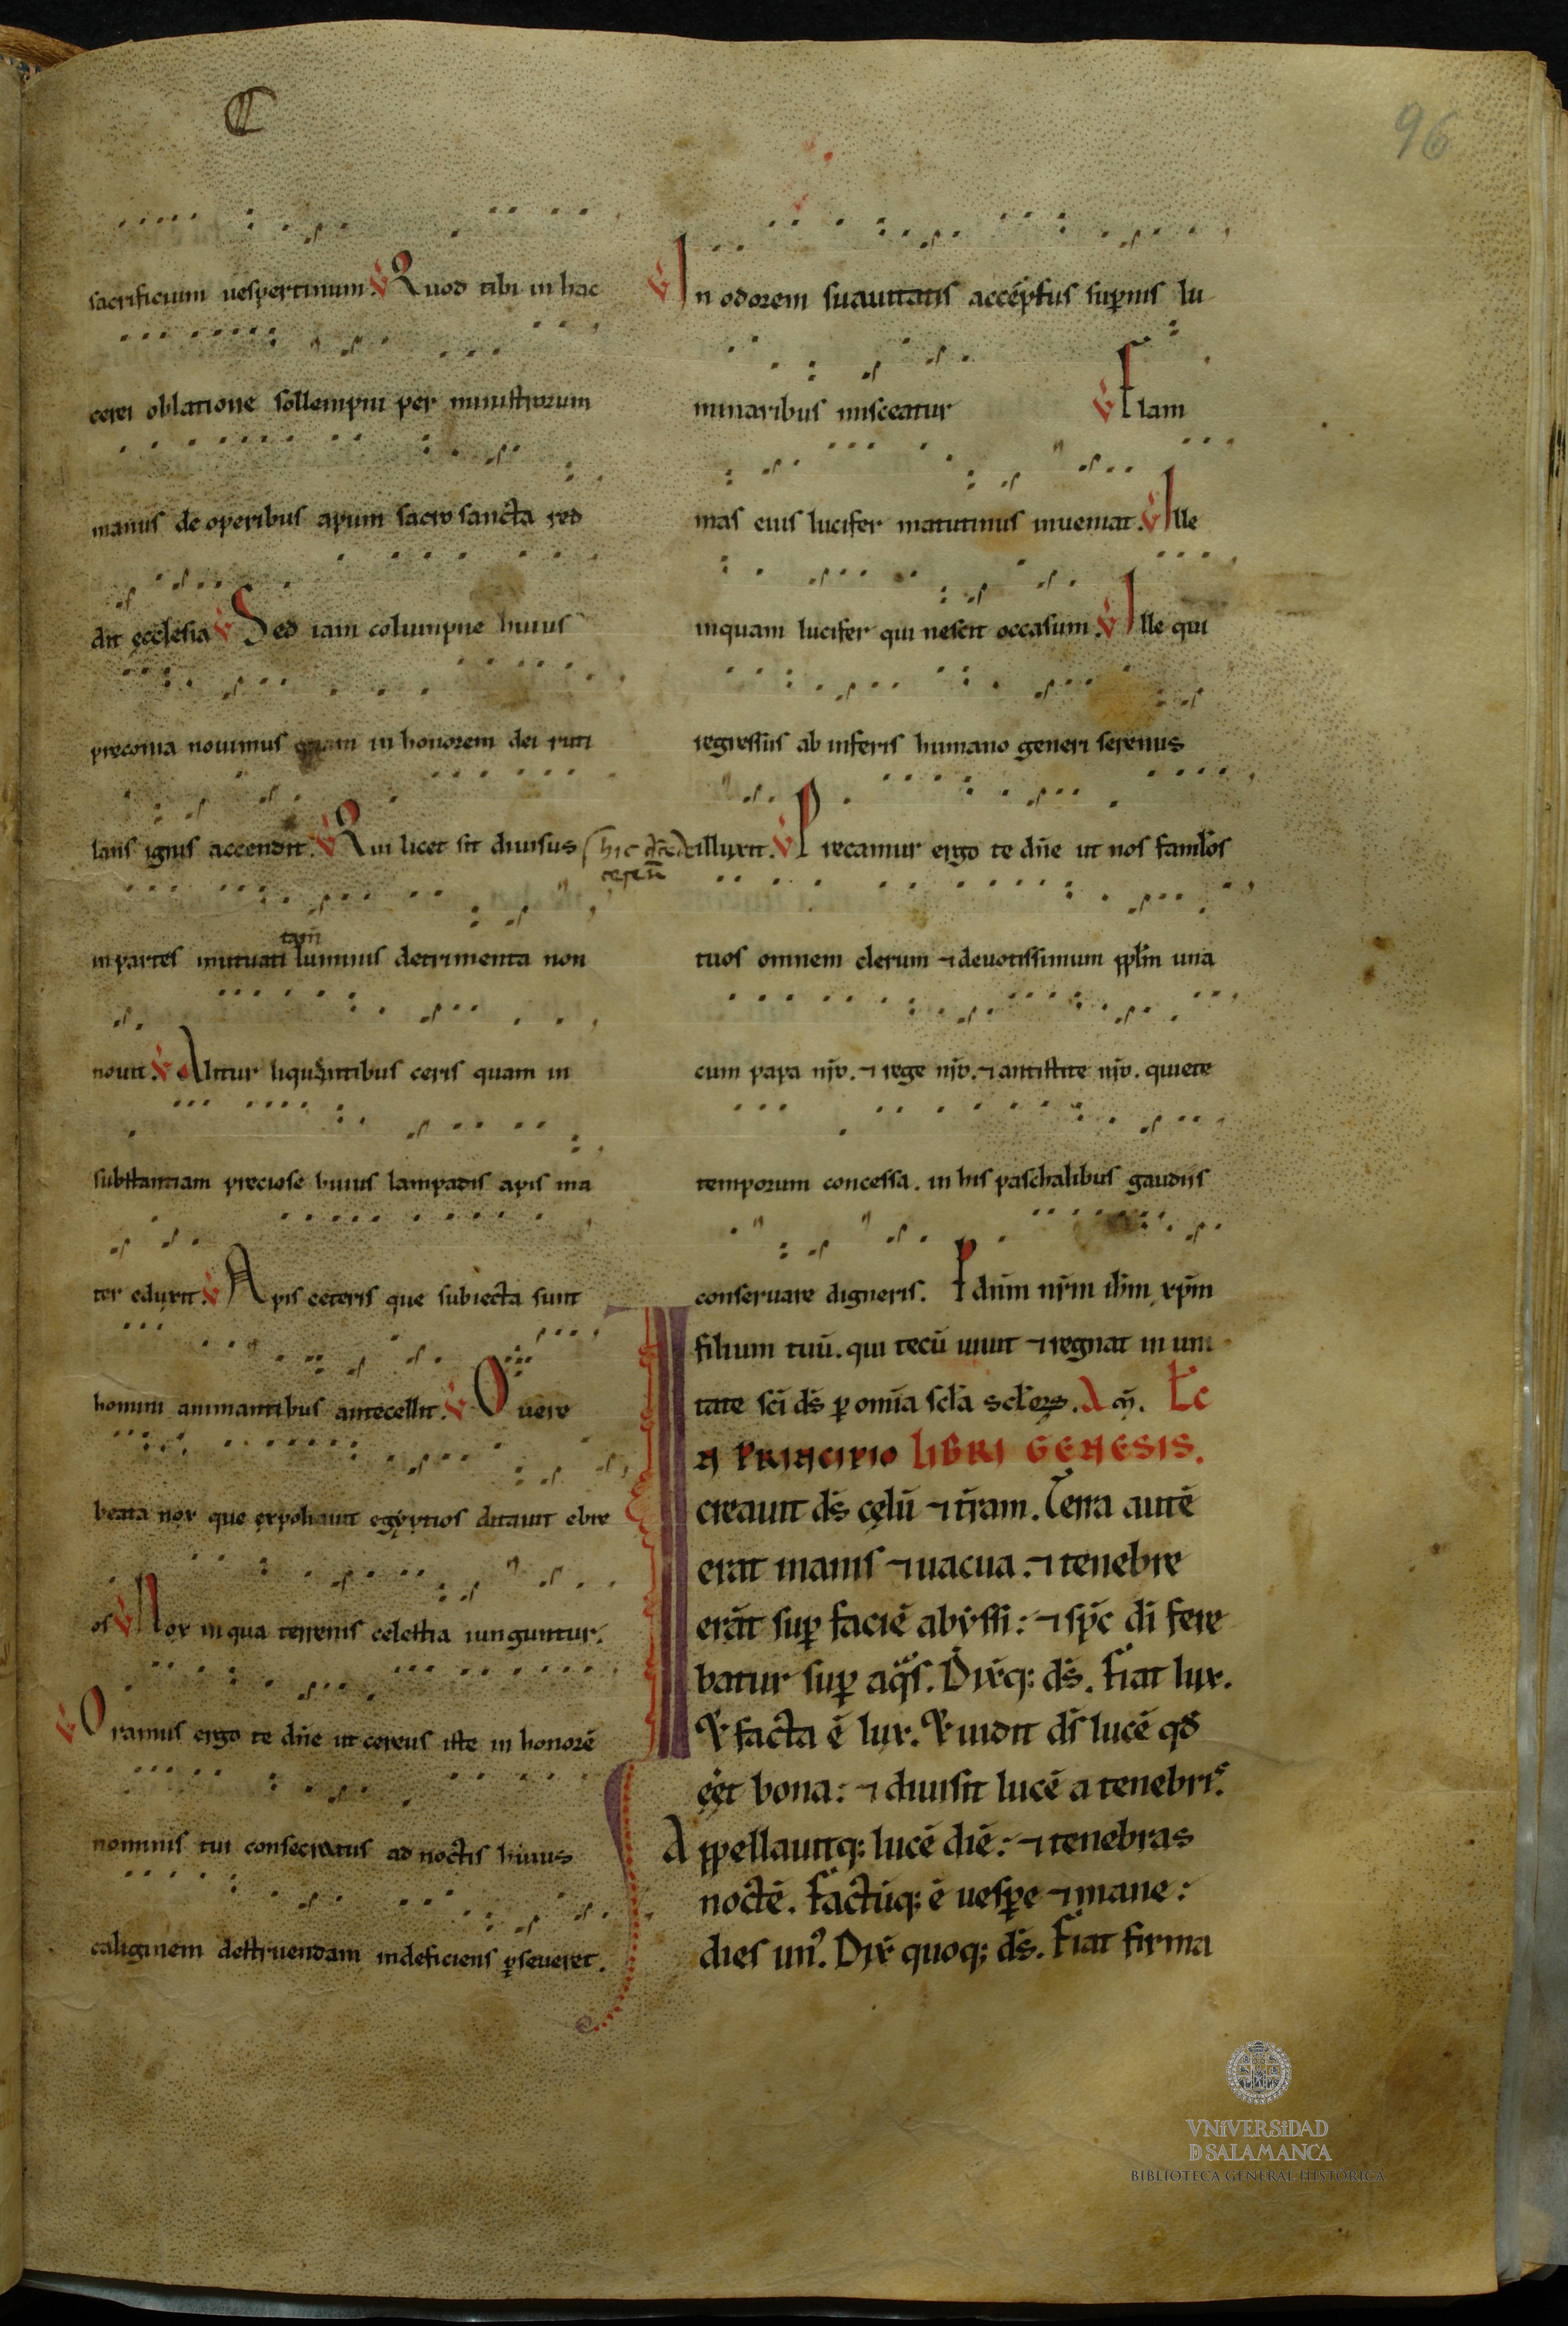 96
sacrificium uespertinum. V Quod tibi in hac
cerei oblatione sollempni per ministrorum
manus de operibus apum sacrosancta red
dit ecclesia V Sed iam columpne huius
preconia nouimus quam in honorem dei ruti
lans ignis accendit. V Qui licet sit diuisus
in partes mutuati tam̅ luminis detrimenta non
nouit. V Alitur liquentibus ceris quam in
substantiam preciose huius lampadis apis ma
ter eduxit. V Apis ceteris que subiecta sunt
homini animantibus antecellit. V O uere
beata nox que expoliauit egyptios ditauit ebre
os V Nox in qua terrenis celestia iunguntur.
V Oramus ergo te dn̅e ut cereus iste in honore̅
nominis tui consecratus ad noctis huius
caliginem destruendam indeficiens ꝑseueret.
V In odorem suauitatis acceptus suꝑnis lu
minaribus misceatur V Flam
mas eius lucifer matutinus inueniat. V Ille
inquam lucifer qui nescit occasum. V Ille qui
regressus ab inferis humano generi serenus
illuxit. V Precamur ergo te dn̅e ut nos famľos
tuos omnem clerum ⁊ deuotissimum ppľm una
cum papa nr̅o. ⁊ rege nr̅o. ⁊ antistite nr̅o. quiete
temporum concessa. in his paschalibus gaudiis
conseruare digneris. P dn̅m nr̅m ihm̅ xpm̅
filium tuu̅. qui tecu̅ uiuit ⁊ regnat in uni
tate sci̅ ds̅ ꝑ omi̅a scľa scľoꝝ. Am̅. Lc̅
IN PRINCIPIO LIBRI GENESIS.
creauit ds̅ celu̅ ⁊ tr̅am. Terra aute̅
erat inanis ⁊ uacua. ⁊ tenebre
era̅t suꝑ facie̅ abyssi: ⁊ sp̅c di̅ fere
batur suꝑ aqͣs. Dix̅q; ds̅. Fiat lux.
& facta e̅ lux. & uidit ds̅ luce̅ qđ
eet̅ bona: ⁊ diuisit luce̅ a tenebris.
Appellauitq; luce̅ die̅: ⁊ tenebras
nocte̅. Factu̅q; e̅ uesꝑe ⁊ mane:
dies unꝰ. Dix̅ quoq; ds̅. Fiat firma
VNiVERSiDAD
D SALAMANCA
BIBLIOTECA GENERAL HISTÓRICA